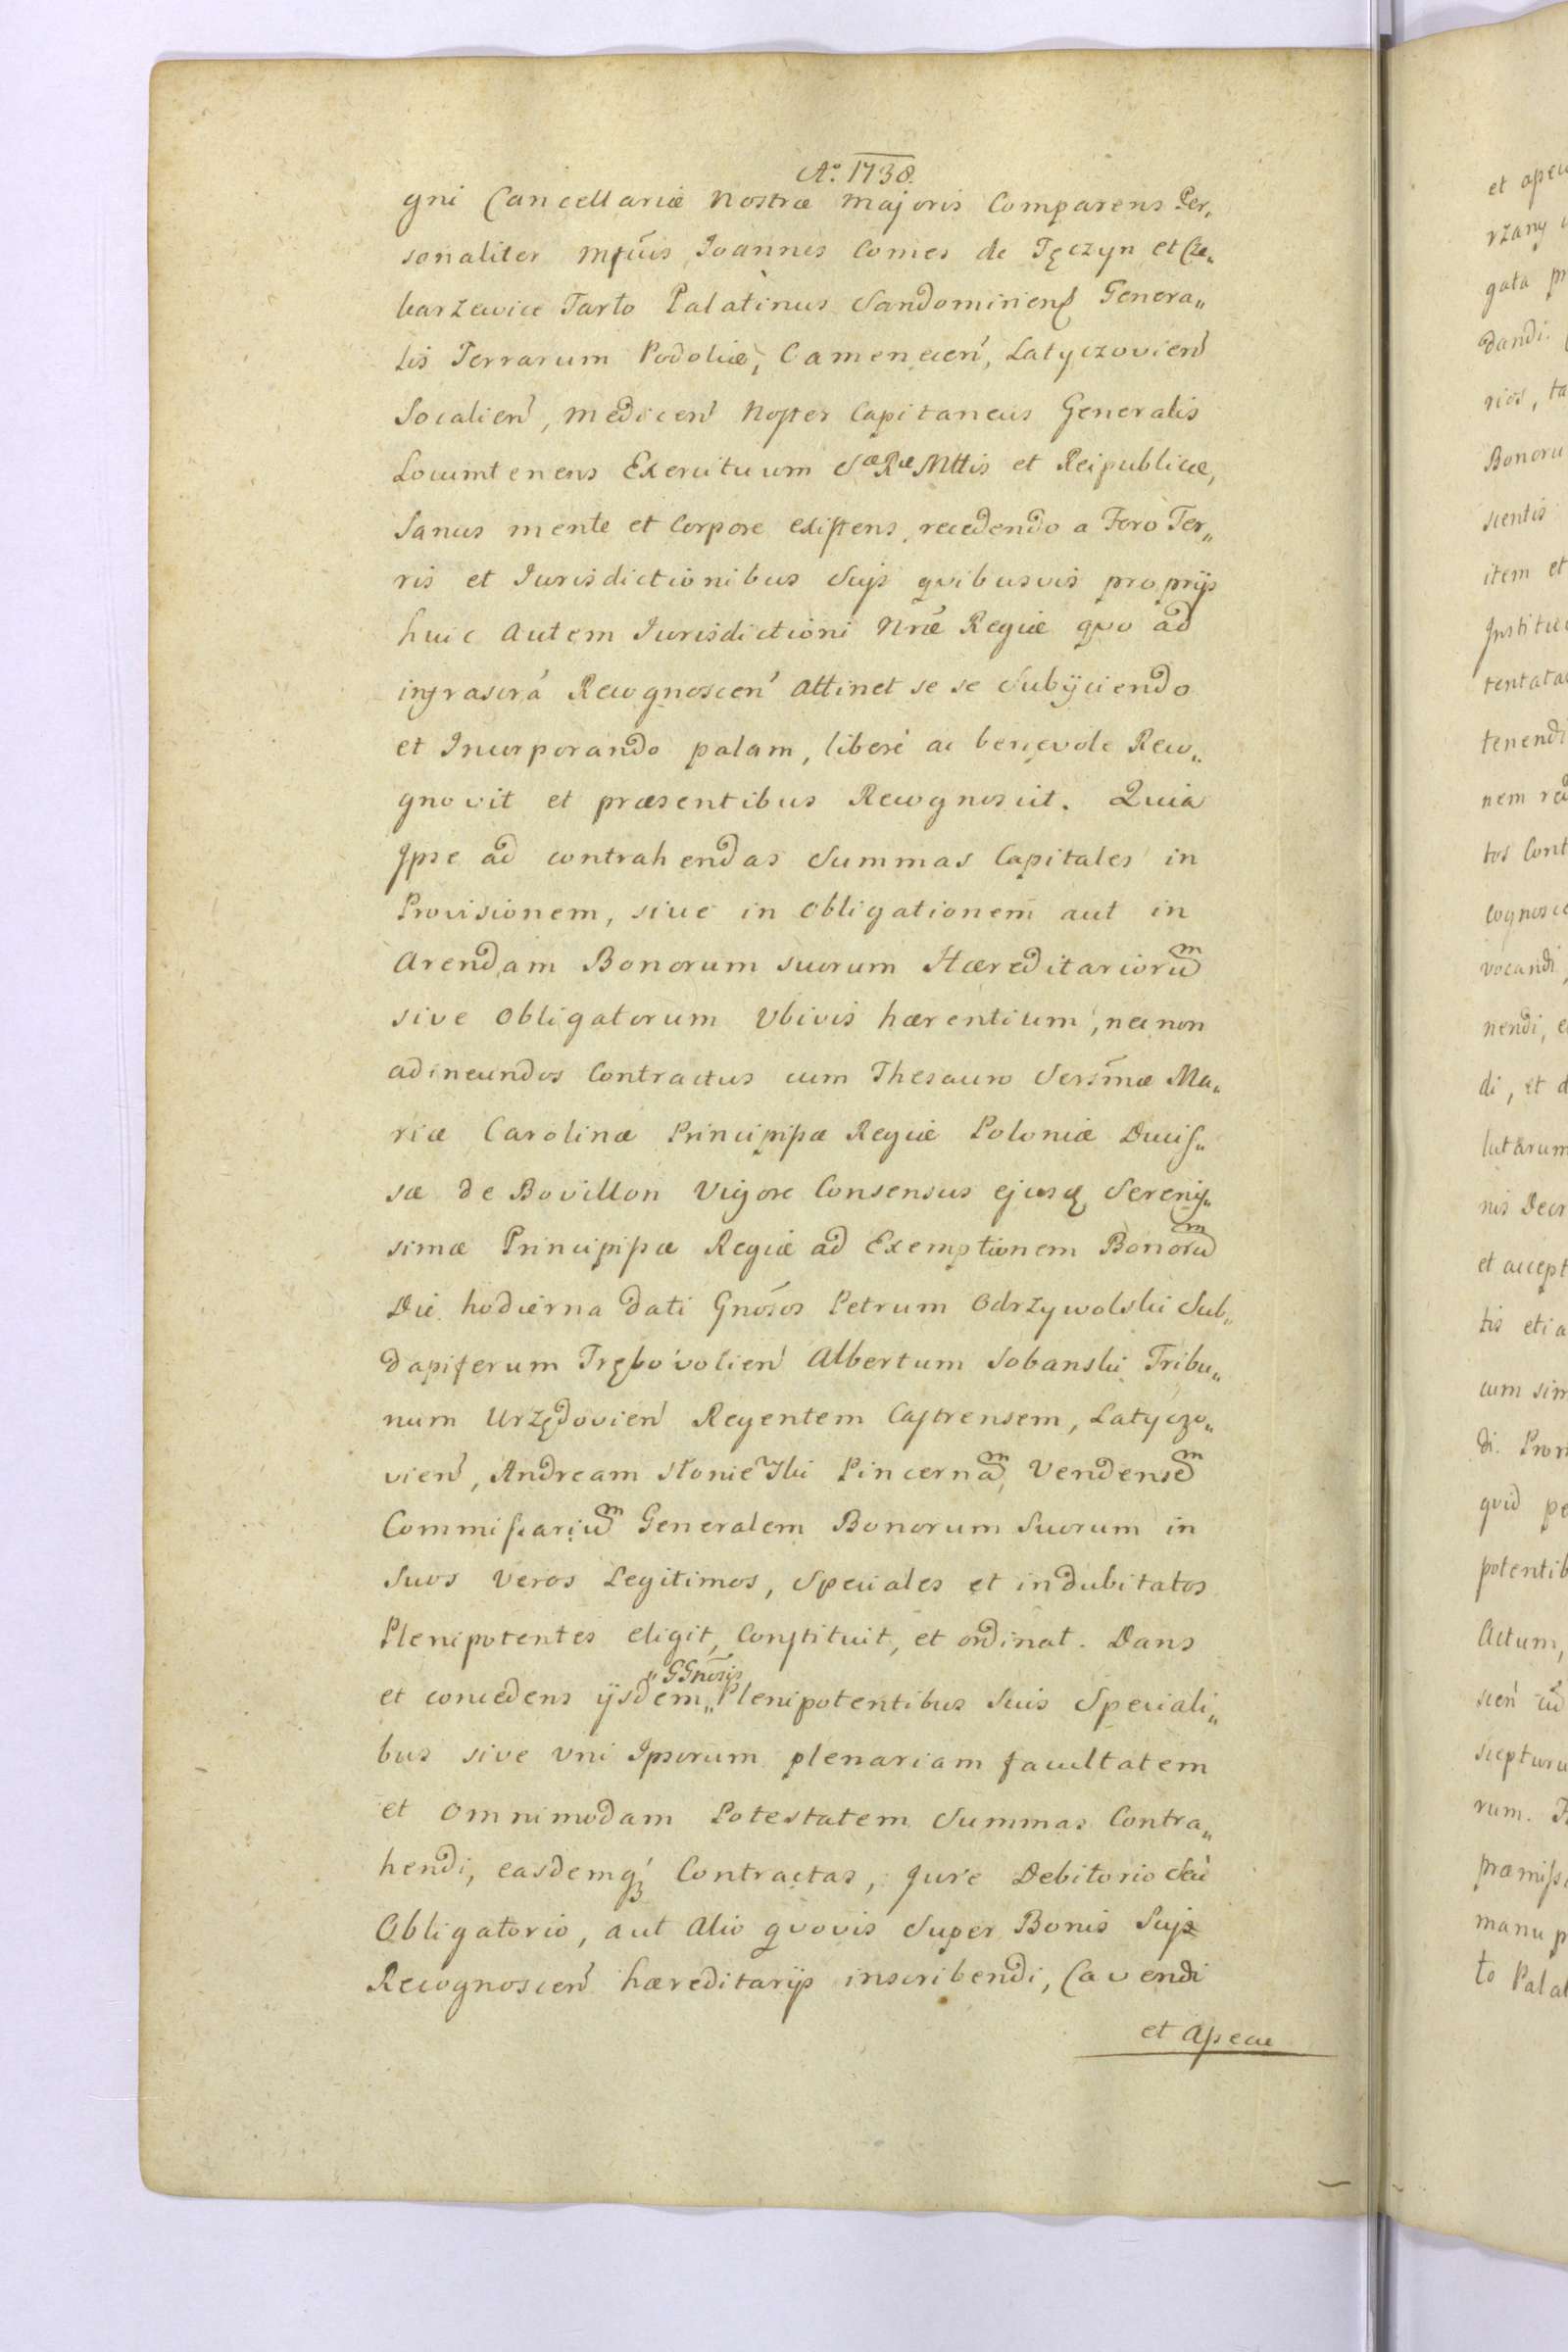 Aº 1738.
gni Cancellariæ Nostræ Majoris Comparens Per„
sonaliter Mfcũs Joannes Comes de Tęczyn et Cze„
karzewice Tarło Palatinus Sandomirien̄ Genera„
lis Terrarum Podoliæ, Camenecen̄, Latyczovien̄
Socalien̄, Medicen̄ Noster Capitaneus Generalis
Locumtenens Exercituum Sæ Ræ Mttis et Reipublicæ,
Sanus mente et Corpore existens, recedendo a Foro Ter„
ris et Jurisdictionibus Suis quibusvis proprijs
huic Autem Jurisdictioni Nrãe Regiæ quo ad
infrascrá Recognoscen̄ Attinet se se Subijciendo
et Incorporando palam, liberè ac benevole Reco„
gnovit et præsentibus Recognoscit. Quia
Ipse ad contrahendas Summas Capitales in
Provisionem, sive in Obligationem aut in
Arendam Bonorum suorum Hæreditarioru͠m
sive Obligatorum Ubivis hærentium, necnon
adineundos Contractus cum Thesauro Sers̃mæ Ma„
riæ Carolinæ Principissæ Regiæ Poloniæ Ducis„
sæ de Bovillon Vigore Consensus ejusq Serenis„
simæ Principissæ Regiæ ad Exemptionem Bonoru͠m
Die hodierna dati Gnõsos Petrum Odrzywolski Sub„
dapiferum Trębovolien̄ Albertum Sobanski Tribu„
num Urzędovien̄ Regentem Castrensem, Latyczo„
vien̄, Andream Słoniewski Pincerna͠m, Vendense͠m
Commissariu͠m Generalem Bonorum Suorum in
Suos Veros Legitimos, Speciales et indubitatos
Plenipotentes eligit, Constituit, et ordinat. Dans
et concedens ijsdem „GGnõsis„ Plenipotentibus Suis Speciali„
bus sive Uni Ipsorum plenariam facultatem
et Omnimodam Potestatem Summas Contra„
hendi, easdemq́ Contractas, Jure Debitorio seù
Obligatorio, aut Alio quovis Super Bonis Suis
Recognoscen̄ hæreditarijs inscribendi, Cavendi
et Apecu
et apecu
rzany
gata
dandi.
rios, ta
Bonoru
scentis
item et
Institu
tentata
tenendi
nem
tos Cont
cognosc
vocandi,
nendi,
di, et d
lutarum
nis Decr
et accept
tis etia
cum sim
di. Pro
quid pe
potentib
Actum,
scen̄
scepturu
rum.
præmiss
manu p
to Palat